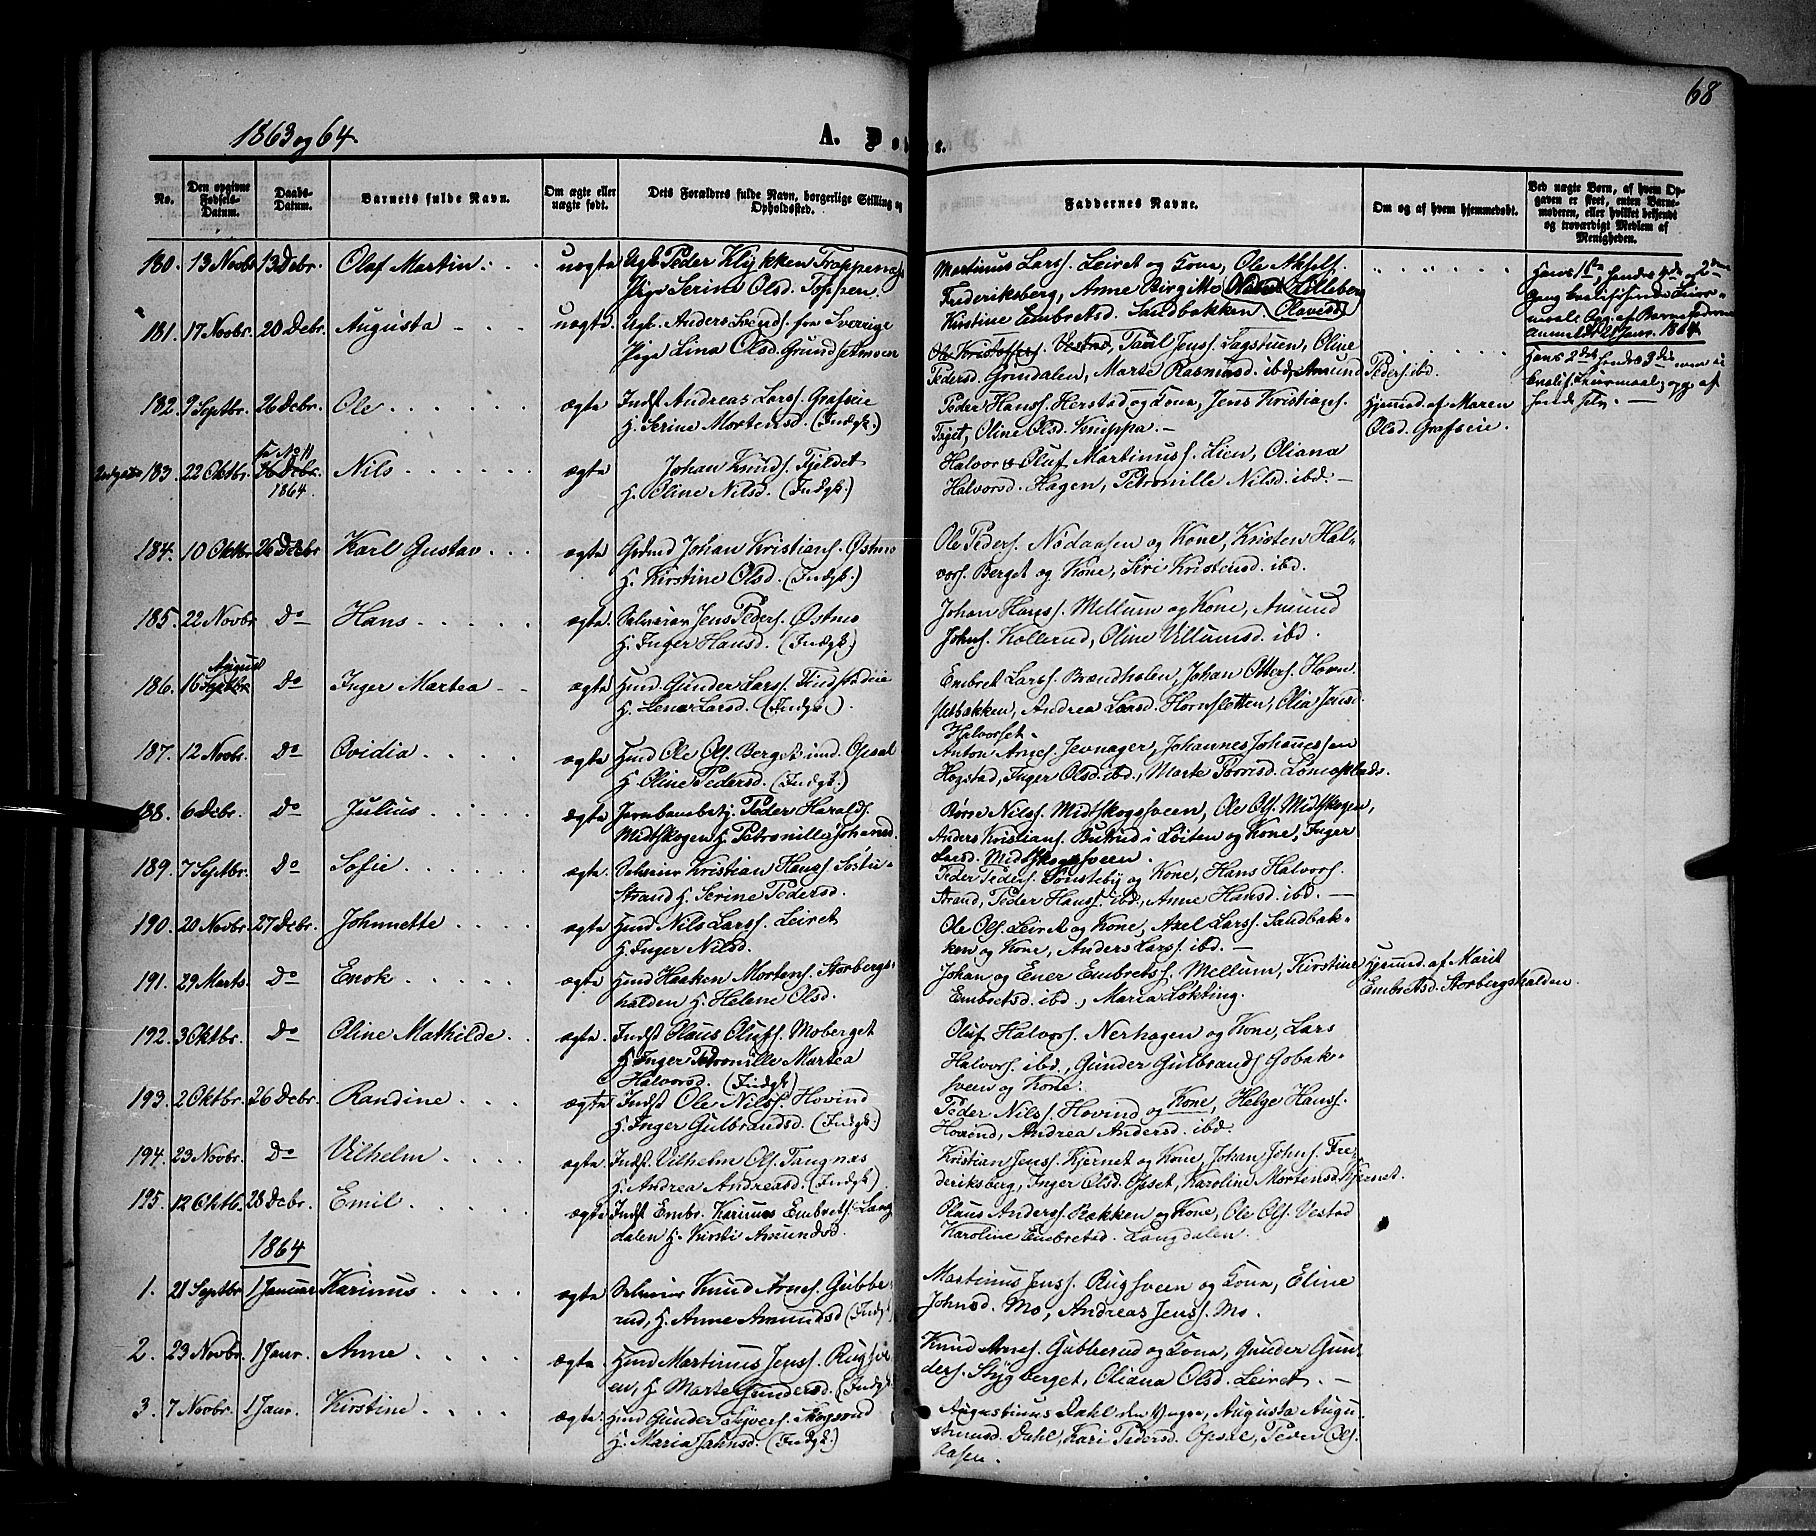 68
1863 og 64.
A. Døbte.
No.
Den opgivne Fødsels-Datum.
Daabs-Datum.
Barnets fulde Navn.
Om ægte eller uægte født.
Dets Forældres fulde Navn, borgerlige Stilling og Opholdssted.
Faddernes Navne.
Om og af hvem hjemmedøbt.
Ved uægte Børn, af hvem Opgaven er skeet, enten Barnemoderen, eller hvilket bekjendt og troværdigt Medlem af Menigheden.
180. 13 Novbr. 13 Debr. Olaf Martin uægte Ugk. Peder Klykken Trappenæs
Pige Serine Olsd. Toppen.
Martinus Larss. Leiret og Kone, Ole Akselss.
Frederiksberg, Anne Birg. Mo,
Kirstine Embretsd. Sandbakken
181. 17 Novbr. 20 Debr. Augusta uægte Ugk. Anders Svends. fra Sverige
Pige Lina Olsd. Grundsetmoen
Ole Kristoffers. Vestad, Paul Jenss. Lagstuen, Oline
Pedersd. Grindalen, Marte Rasmusd. ibd, Amund Peders. ibd.
182. 9 Septbr. 26 Debr. Ole ægte Indst Andreas Larss. Grafseie
H. Serine Mortensd. (Indgk.)
Peder Hanss. Herstad og Kone, Jens Kristians.
Tøjet, Oline Olsd. Knuppa.
Hjemmed. af Maren
Olsd. Grafseie.
183. 22 Oktbr. 26 Debr. 1864. Nils ægte Johan Knuds. Fjeldet
H. Oline Nilsd. (Indgk.)
Halvor & Oluf Martinuss. Lien, Oliana
Halvorsd. Hagen, Petronille Nilsd. ibd.
184. 10 Oktbr. 26 Debr. Karl Gustav ægte Grdmd Johan Kristians. Østmo
H. Kirstine Olsd. (Indgk.)
Ole Peders. Nodaasen og Kone, Kristen Hal-
vors. Berget og Kone, Siri Kristensd. ibd.
185. 22 Novbr. Do Hans ægte Selveier Jens Peders. Østmo
H. Inger Hansd. (Indgk.)
Johan Hanss. Mellum og Kone, Amund
Johns. Kollerud, Oline Villumsd. ibd.
186. 16 August Septbr. Do Inger Martea ægte Hmd. Gunder Larss. Findstadeie
H. Lena Larsd. (Indgk.)
Embret Larss. Brændholen, Johan Otters. Horn-
sletbakken, Andrea Larsd. Hornsletten, Olia Jensd.
Halvorset.
187. 12 Novbr. Do Ovidia ægte Hmd Ole Ols. Berget und. Opsal
H. Oline Pedersd. (Indgk.)
Anton Arnes. Jevnager, Johannes Johannessen
Hogstad, Inger Olsd. ibd., Marte Torrisd. Lømoplads.
188. 6 Debr. Do Julius ægte Jernbanebetj. Peder Haralds.
Midtskogen H. Petronille Johansd.
Børre Nilss. Midtskogsveen, Ole Ols. Midtskogen,
Anders Kristians. Butrud i Løiten og Kone, Inger
Larsd. Midtskogsveen.
189. 7 Septbr. Do Sofie ægte Selveier Kristian Hanss. Sørstu-
Strand H. Serine Pedersd.
Peder Peders. Sønsteby og Kone, Hans Halvors.
Strand, Peder Hanss. ibd., Anne Hansd. ibd.
190. 20 Novbr. 27 Debr. Johnnette ægte Hmd Nils Larss. Leiret
H. Inger Nilsd.
Ole Ols. Leiret og Kone, Axel Larss. Sandbak-
ken og Kone, Anders Larss. ibd.
191. 29 Marts. Do Enok ægte Hmd Haaken Mortens. Storbergs-
halden H. Helene Olsd.
Johan og Ener Embrets. Mellum, Kirstine
Embretsd. ibd., Maria Løkting.
Hjemmed. af Marit
Embretsd. Storbergshalden.
192. 3 Oktbr. Do Oline Mathilde ægte Indst Olaus Olufs. Moberget
H. Inger Petronille Martea
Halvorsd. (Indgk.)
Oluf Halvors. Nerhagen og Kone, Lars
Halvors. ibd., Gunder Gulbrands. Gobak-
sveen og Kone.
193. 2 Oktbr. 26 Debr. Randine ægte Indst Ole Nilss. Hovind
H. Inger Gulbrandsd. (Indgk.)
Peder Nilss. Hovind og Kone, Helge Hanss.
Hovind, Andrea Andersd. ibd.
194. 23 Novbr. Do Vilhelm ægte Indst. Vilhelm Ols. Tangnæs
H. Andrea Andreasd. (Indgk.)
Kristian Jenss. Kjernet og Kone, Johan Johns. Fre-
deriksberg, Inger Olsd. Opset, Karoline Mortensd. Kjernet.
195. 12 Oktb. 28 Debr. Emil ægte Indst Embr. Karinus Embrets. Lang-
dalen H. Kirsti Amundsd.
Olaus Anders. Bakken og Kone, Ole Ols. Vestad
Karoline Embretsd. Langdalen.
1864
1. 21 Septbr. 1 Januar Karinus ægte Selveier Knud Arnes. Gubbe-
rud, H. Anne Amundsd (Indgk.)
Martinus Jenss. Rugsveen og Kone, Eline
Johnsd. Mo, Andreas Jenss. Mo.
2. 23 Novbr. 1 Janr. Anne ægte Hmd Martinus Jenss. Rugsve-
en, H. Marte Gundersd. (Indgk.)
Knud Arnes. Gubberud og Kone, Gunder Gun-
ders. Stygberget, Oliana Olsd. Leiret.
3. 7 Novbr. 1 Janr. Kirstine ægte Hmd Gunder Syvers. Skogsrud
H. Maria Jahnsd. (Indgk.)
Augustinus Dahl den Yngre, Augusta Augu-
stinusd. Dahl, Kari Pedersd. Opsal, Peder Ols.
Aasen.